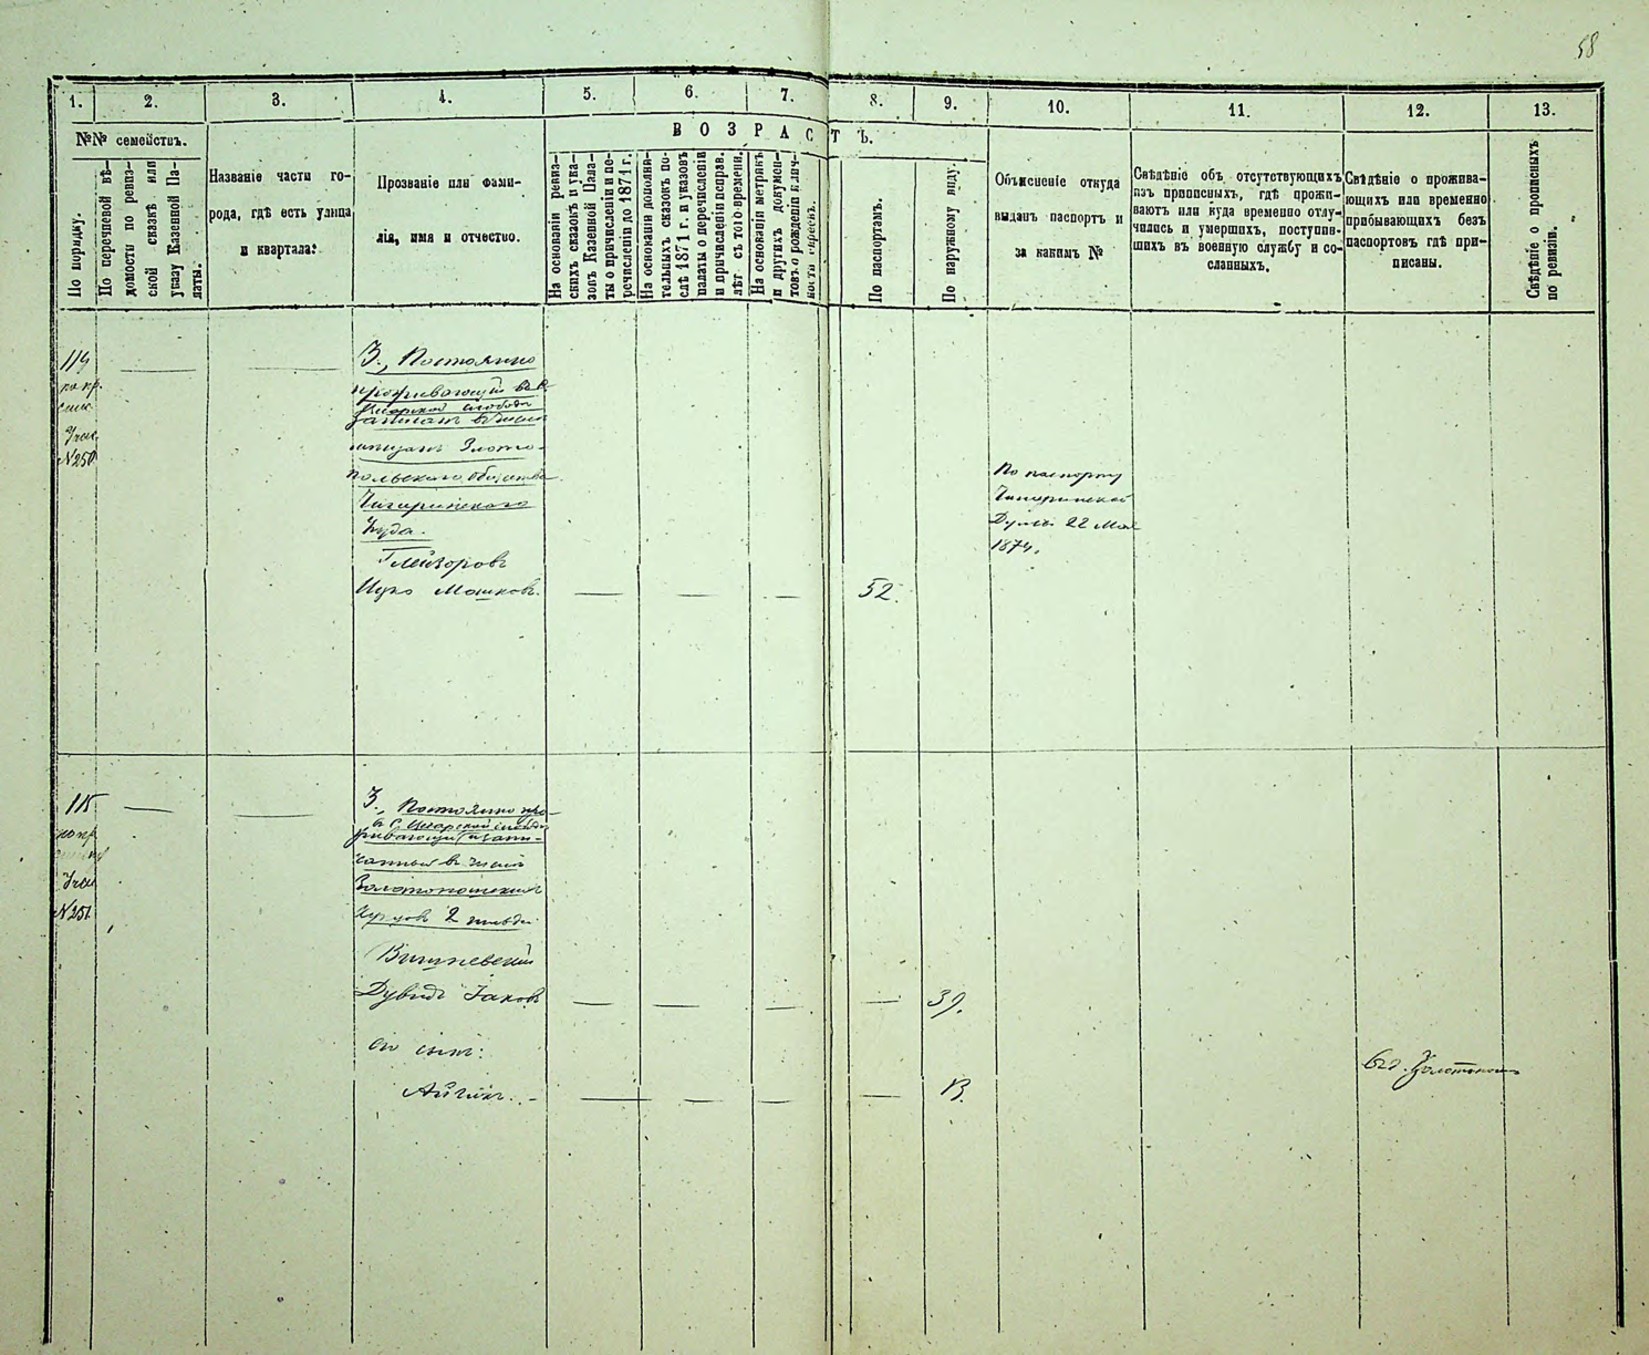 58
1. 2. 3. 4. 5. 6. 7. 8. 9. 10. 11. 12. 13.
№№ семействъ.
По порядку.
По перечневой вѣ-
домости по ревиз-
ской сказкѣ или
указу Казенной Па-
латы.
Названіе части го-
рода, гдѣ есть улица
и квартала.
Прозваніе или фами-
лія, имя и отчество.
ВОЗРАСТЪ.
На основаніи ревиз-
скихъ сказокъ и ука-
зовъ Казенной Пала-
ты о причисленіи и пе-
речисленіи до 1871 г.
На основаніи дополни-
тельныхъ сказокъ по-
слѣ 1871 г. и указовъ
палаты о перечисленіи
и причисленіи исправ.
лѣт съ того времени.
На основаніи метрикъ
и другихъ докумен-
товъ о рожденіи
По паспортамъ.
По наружному виду.
Объясненіе откуда
выданъ паспортъ и
за какимъ №
Свѣдѣніе объ отсутствующихъ
изъ приписныхъ, гдѣ прожи-
ваютъ или куда временно отлу-
чились и умершихъ, поступив-
шихъ въ военную службу и со-
сланныхъ.
Свѣдѣніе о прожива-
ющихъ или временно
прибывающихъ безъ
паспортовъ гдѣ при-
писаны.
Свѣдѣніе о прописныхъ
по ревизіи.
по пр.
№250
3., Постоянно
проживающій
слободѣ
мещанъ Злото-
польскаго Общества
Чигиринского
Уѣзда.
Глейзоровъ
Ицко Мошковъ.
52.
По паспорту
Чигиринской
Думы 22 Мая
1874.
115
по пр.
№251
3., Постоянно про-
живающій
въ числѣ
Золотоношскихъ
Купцовъ 2 гильдіи
Вишневскій
Дувидъ Іаковъ
39.
Его сынъ:
13.